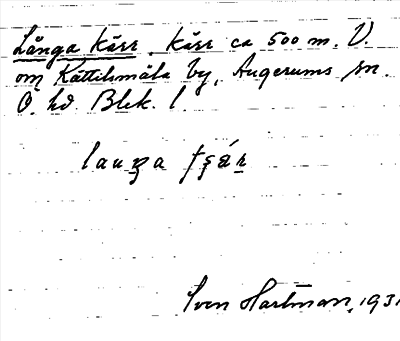 Långa Kärr. Kärr ca 500 m. V.
om Kättilsmåla by, Augerums sn.
Ö. hd Blek. l.
Sven Hartman, 1931